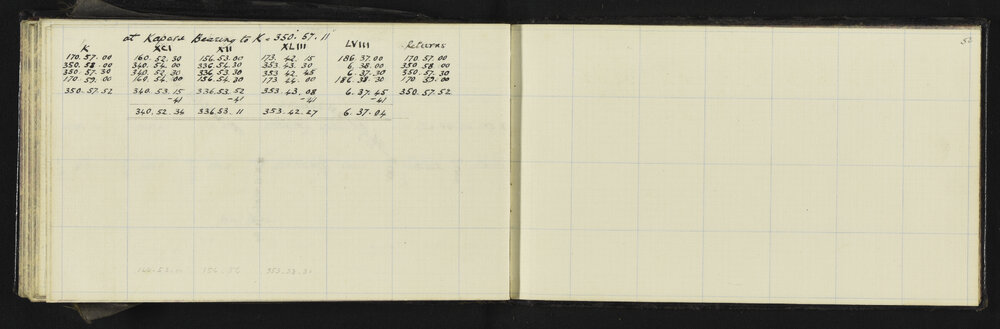 at Kapara Bearing to K = 350°. 57'. 11"
K XCI XII XLIII LVIII Returns
170. 57. 00 160. 52. 30 156. 53. 00 173. 42. 15 186 37. 00 170 57. 00
350. 58. 00 340. 54. 00 336. 54. 30 353. 43. 30 6. 38. 00 350 58. 00
350. 57. 30 340. 52. 30 336. 53. 30 353 42. 45 6. 37. 30 350. 57. 30
170. 59. 00 160. 54. 00 156. 54. 30 173 44. 00 186. 38. 30 170 59. 00
350. 57. 52 340. 53. 15 336. 53. 52 353. 43. 08 6. 37. 45 350. 57. 52
-41 -41 -41 -41
340. 52. 34 336 53. 11 353. 42. 27 6. 37. 04